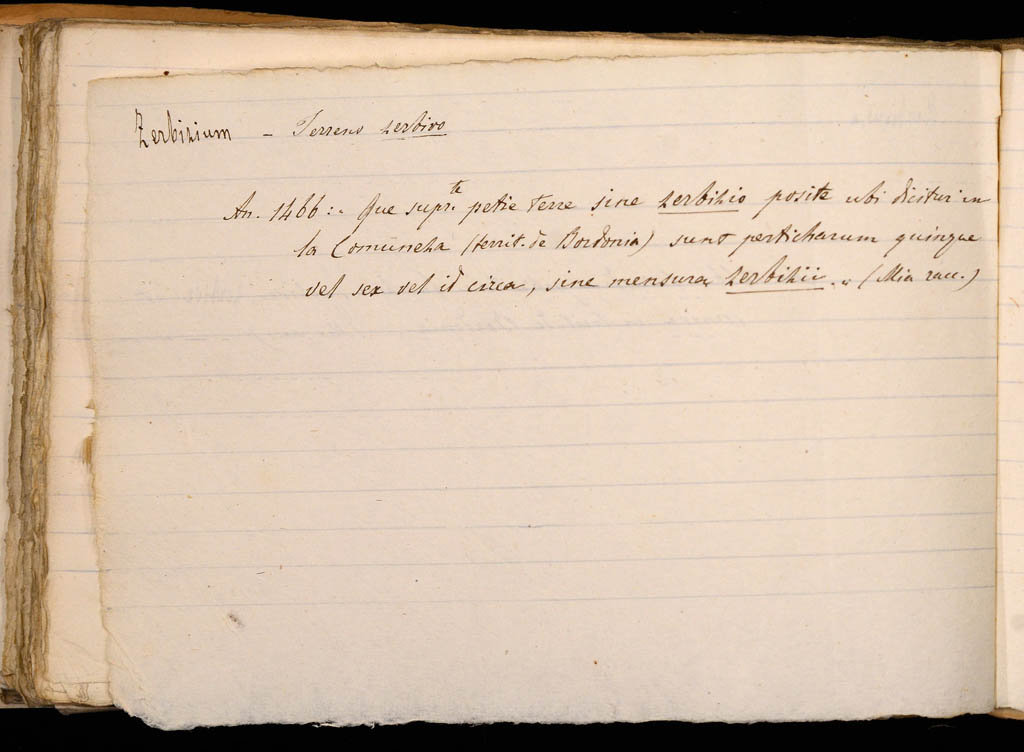 Zerbizium - Terreno zerbivo
An. 1466:„ Que supr.te petie terre sine zerbizio posite ubi dicitur in
la Comuneza (territ. de Bordonia) sunt perticharum quinque
vel sex vel id circa, sine mensura zerbizii. „ (Mia racc.)